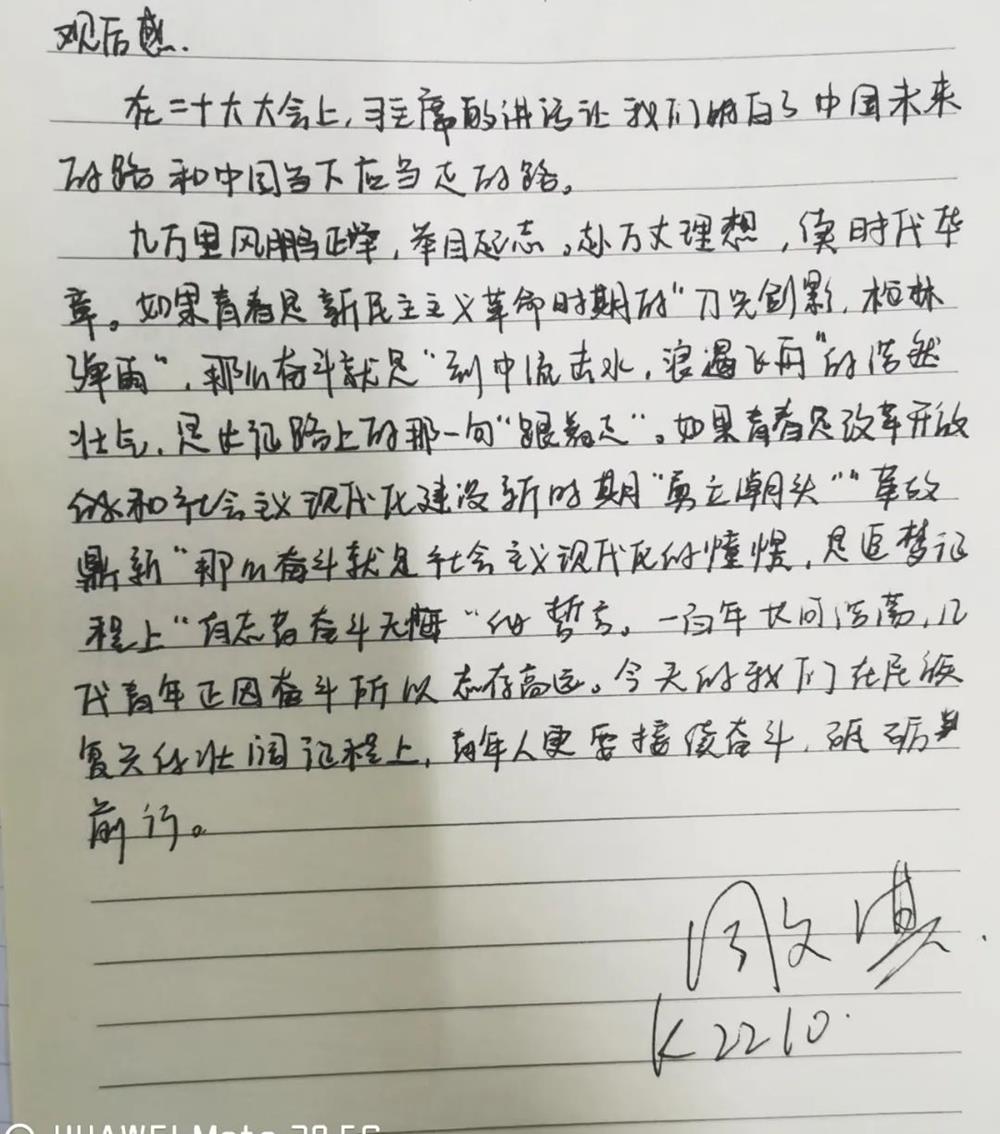 观后感.
在二十大大会上,习主席的讲话让我们明白了中国未来
的路和中国当下应当走的路。
九万里风鹏正举,举目起志。赴万丈理想,续时代华
章。如果青春是新民主主义革命时期的"刀光剑影,枪林
弹雨",那么奋斗就是"到中流击水,浪遏飞舟"的浩然
壮气,是长征路上的那一句"跟着走"。如果青春是改革开放
的和社会主义现代化建设新时期"勇立潮头""革故
鼎新"那么奋斗就是社会主义现代化的憧憬,是追梦征
程上"有志者奋斗无悔"的誓言。一百年长河浩荡,几
代青年正因奋斗所以志存高远。今天的我们在民族
复兴的壮阔征程上,青年人更要接续奋斗,砥砺
前行。
周文淇.
K2210.